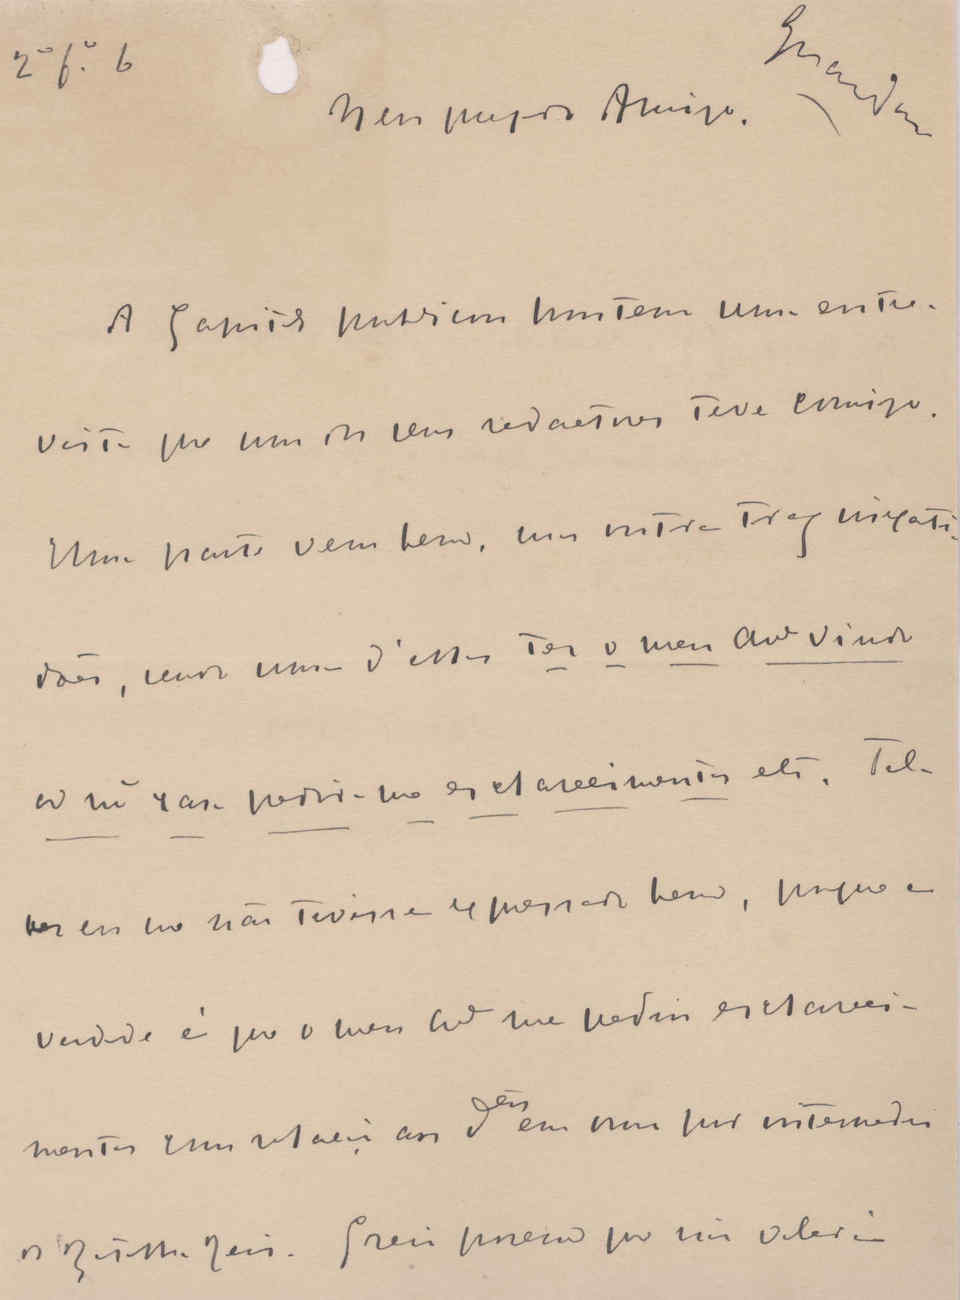 2ª fª 6
Guardar
Meu presado Amigo.
A Capital publicou hontem uma entre-
vista que um dos seus redactores teve comigo.
Uma parte vem bem, mas outra traz inexati-
dões, sendo uma d'estas ter o meu Avô vindo
a m.ª casa pedir-me esclarecimentos etc. Tal-
vez eu me não tivesse expressado bem, porque a
verdade é que o meu Avô me pediu esclareci-
mentos com relação ao em por intermedio
do Creio porem que não valeria